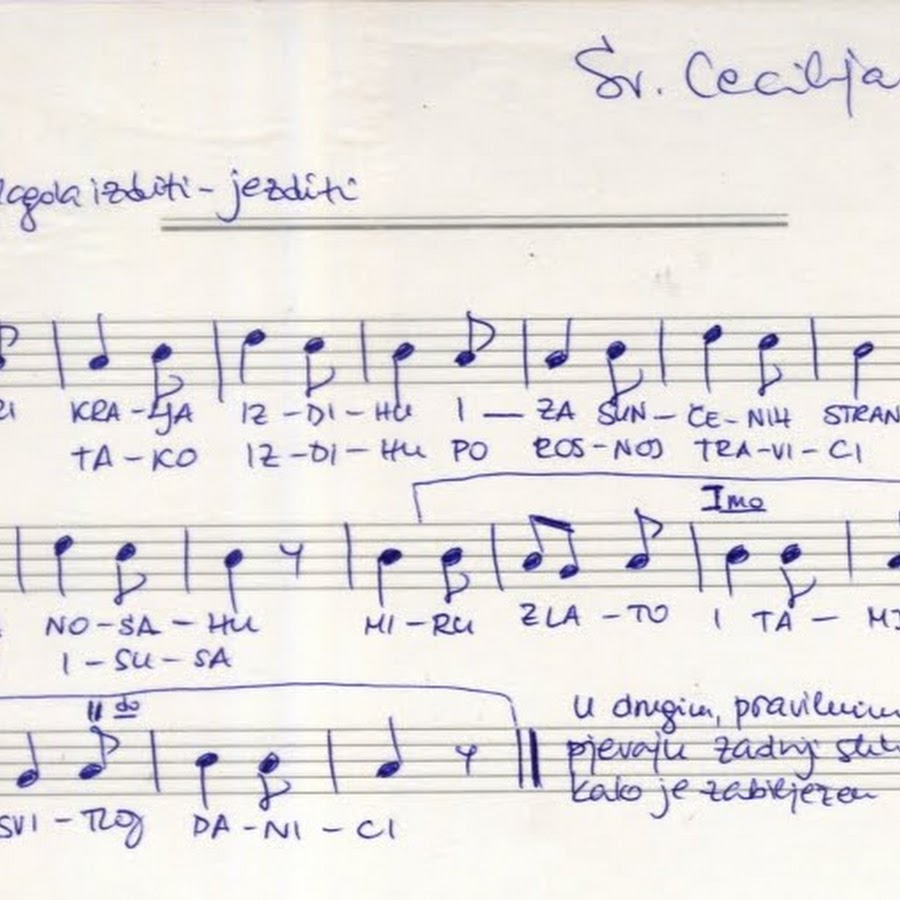 Sv. Cecilija
izditi - jezditi
KRA - LJA IZ - DI - HU I — ZA SUN - ČE - NIH STRAN
TA - KO IZ - DI - HU PO ROS - NOJ TRA - VI - CI
Imo
NO - SA - HU MI - RU ZLA - TO I TA - MI
I - SU - SA
II do
SVI - TLOJ DA - NI - CI
U drugim, pravilnim
pjevaju zadnji stih
kako je zabilježen